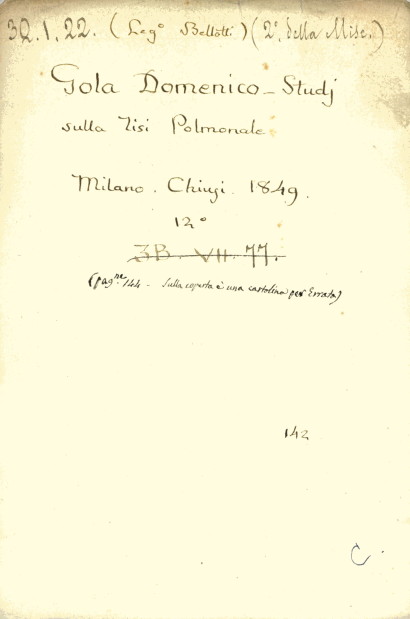 3Q.1.22. (Leg° Bellotti) (2°. della Misc.)
Gola Domenico - Studj
sulla Tisi Polmonale
Milano. Chiusi. 1849.
12°
3B. VII. 77.
(pag.ne 144 - sulla coperta è una cartolina per Errata)
142
C.